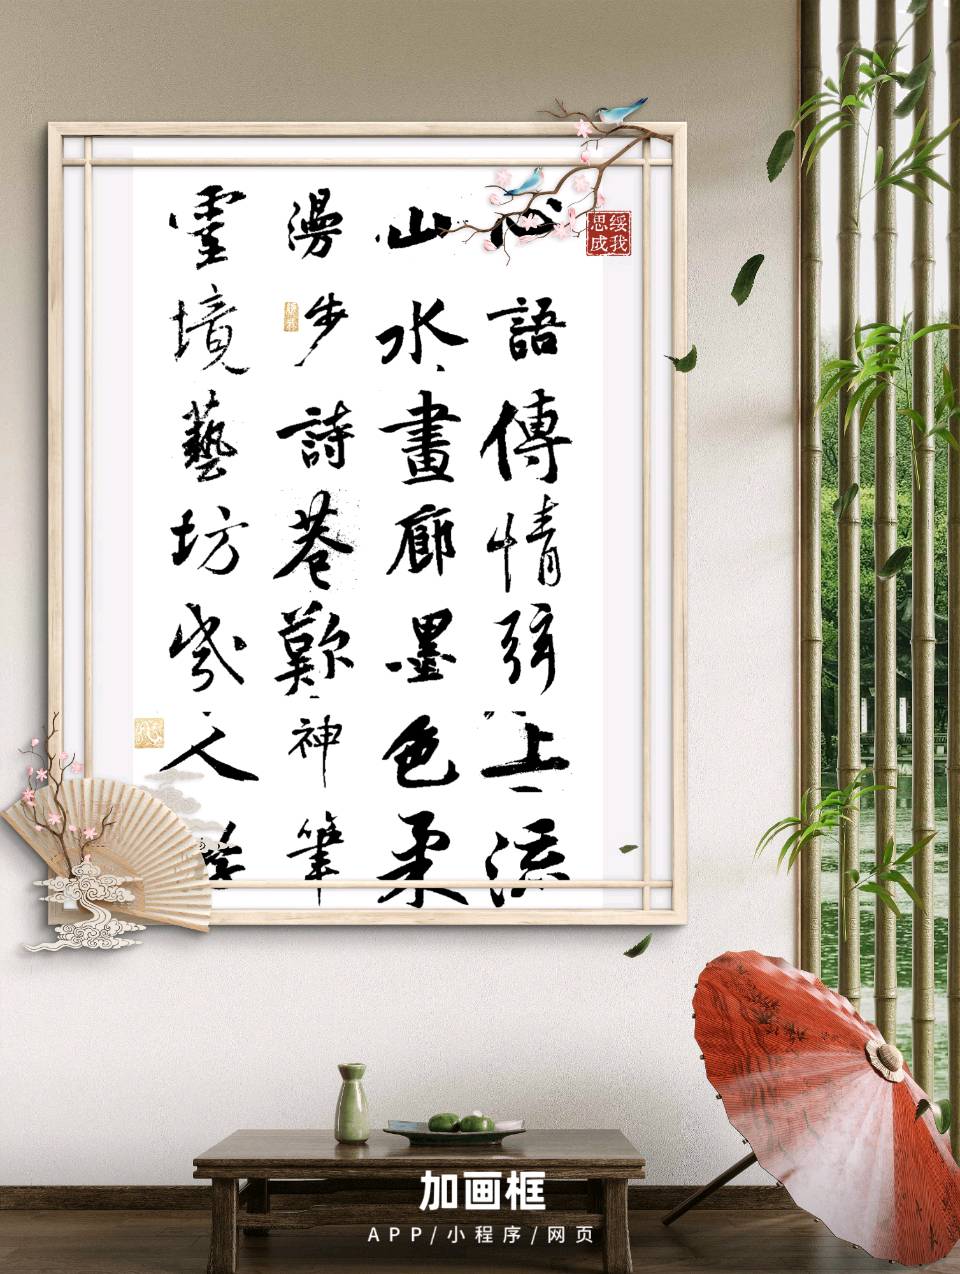 心語傳情弦上流
山水畫廊墨色柔
漫步詩巷歎神筆
靈境藝坊幾人
綏我思成
加画框
APP/小程序/网页